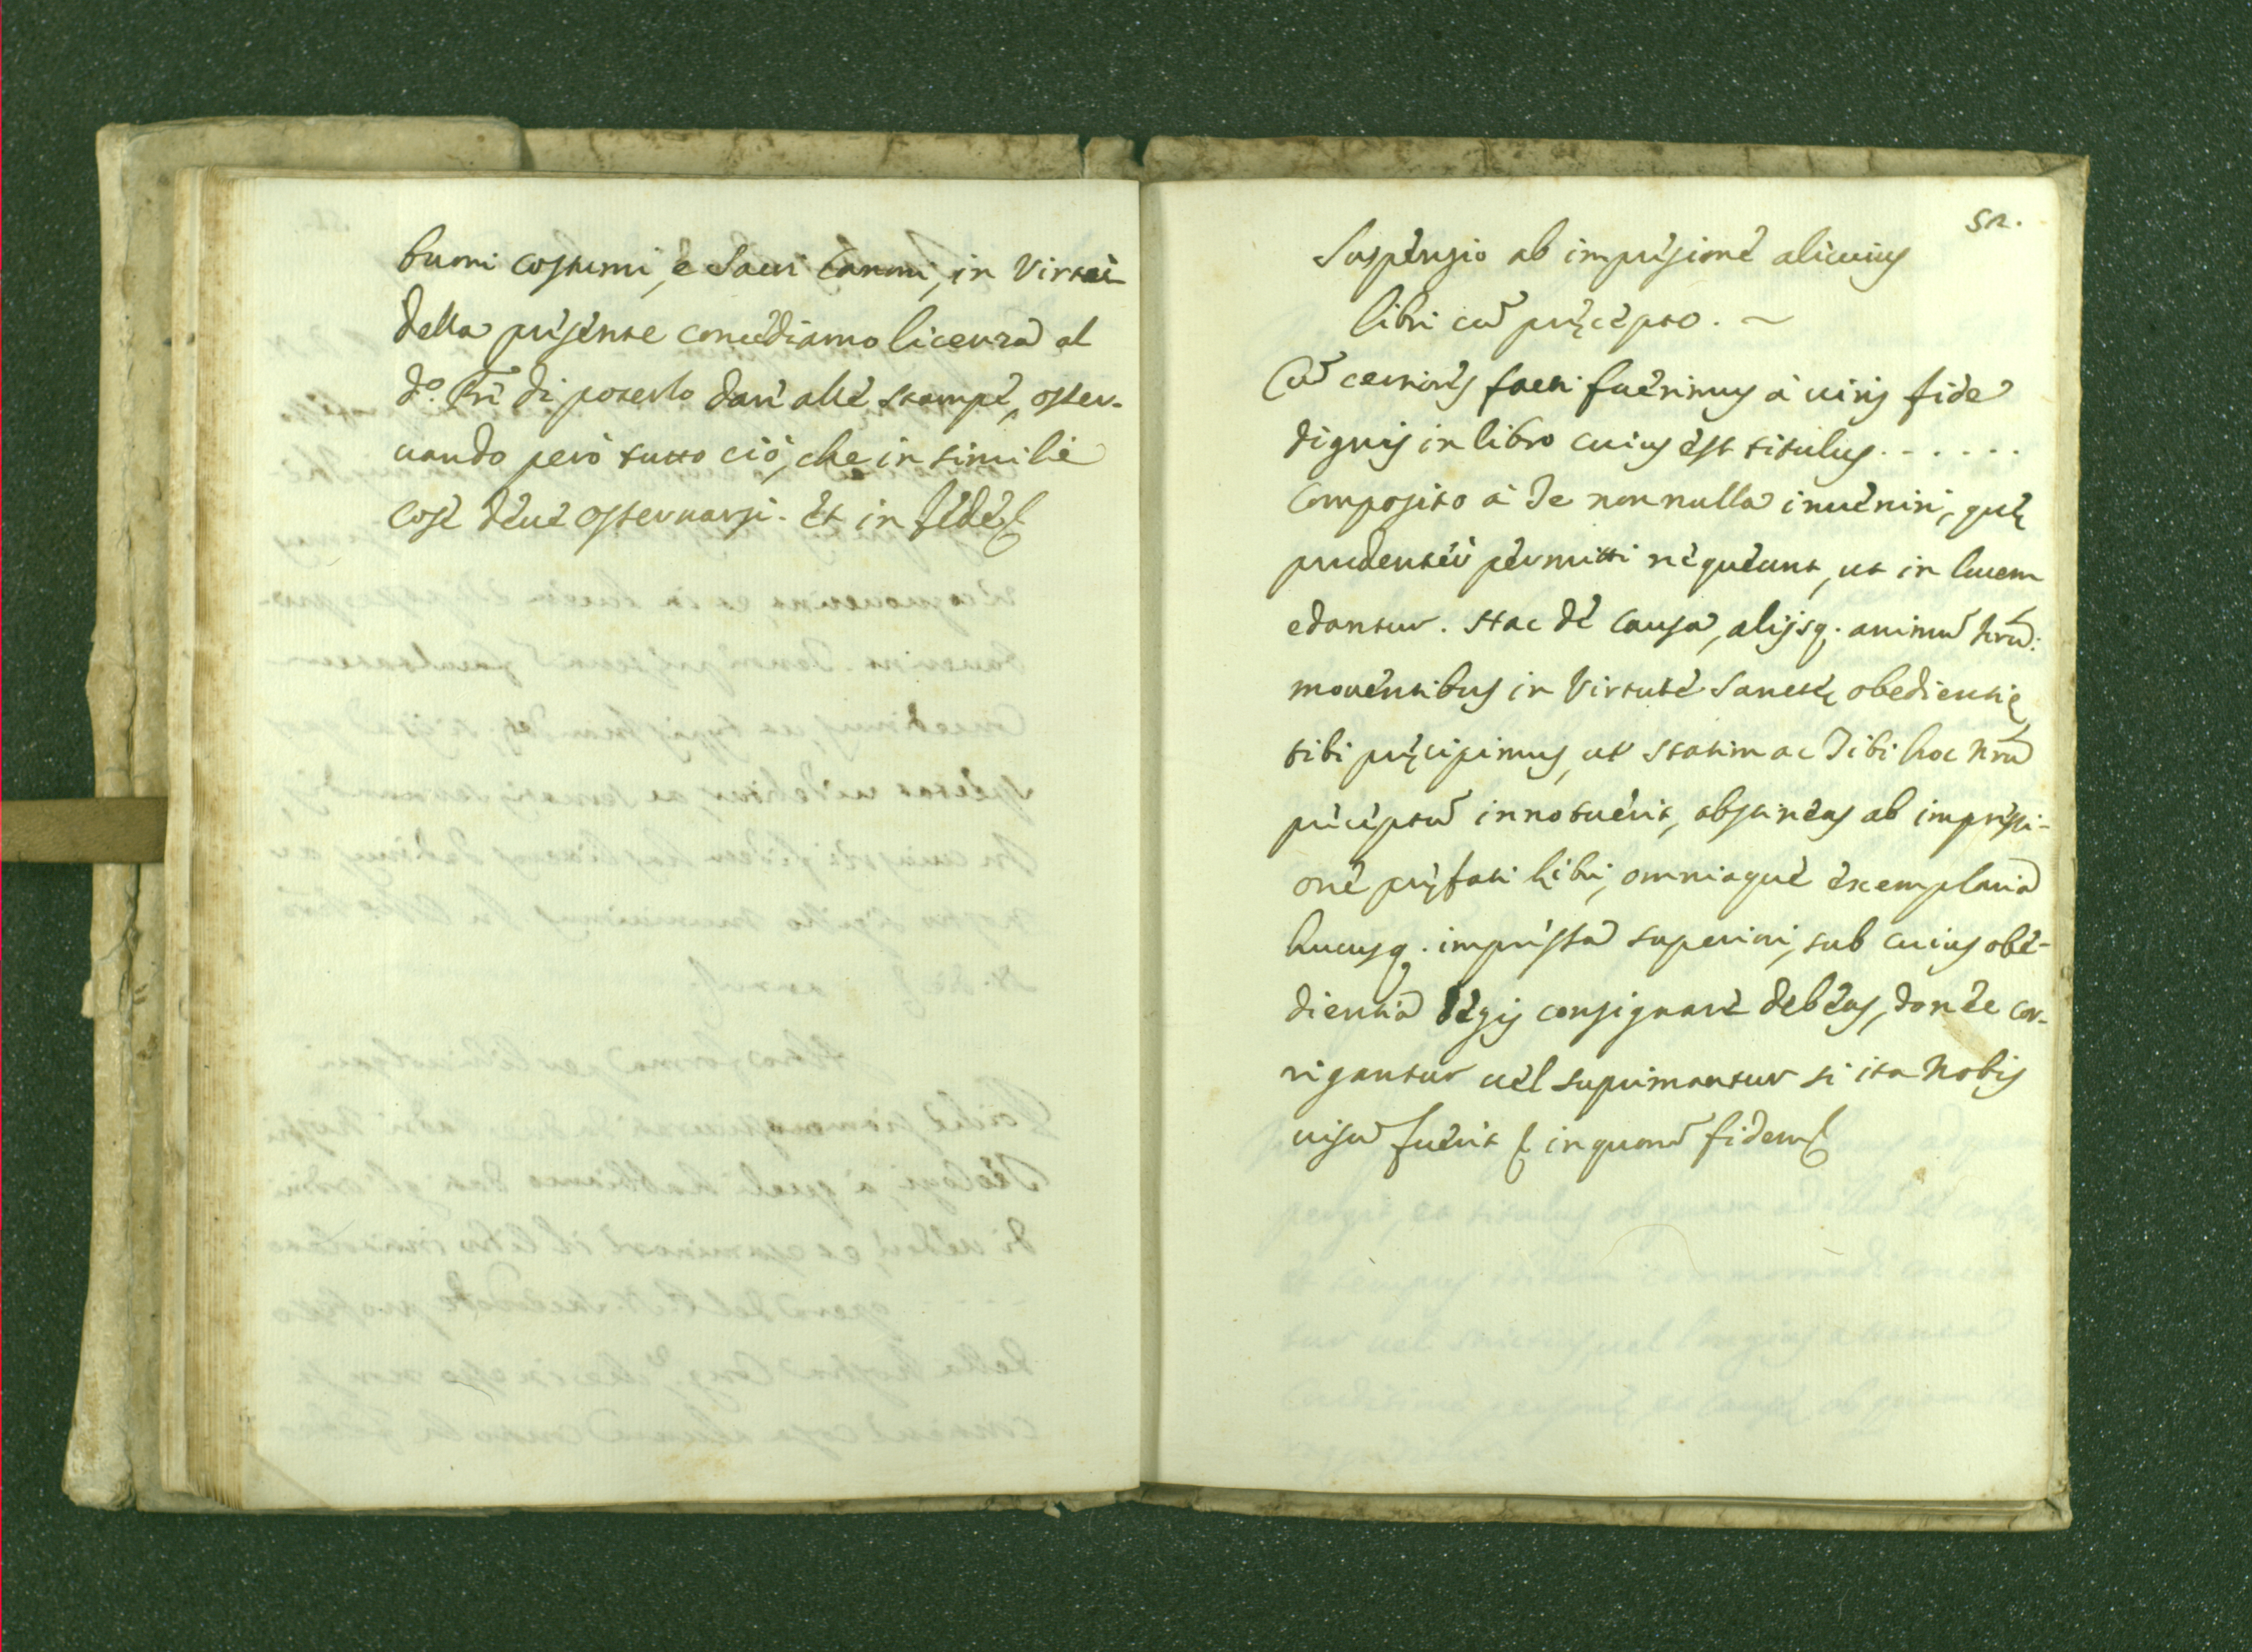 buoni costumi, e Sacri Canoni, in Virtù
della presente concediamo licenza al
d.º Prê di poterlo dare alle stampe, osser-
uando però tutto ciò, che in simili
cose deue osseruarsi. Et in fede
52.
Suspensio ab impressione alicuius
libri cũ pręcepto. ~
Cũ certiores facti fuerimus à uiris fide
dignis in libro cuius est titulus . - . . . .
Composito à Te nonnulla inueniri, quę
prudenter permitti nequeunt, ut in lucem
edantur. Hac de causa, alijsq. animũ nrũ:
mouentibus in Virtute Sanctę obedientię
tibi pręcipimus, ut statim ac Tibi hoc nrũ
preceptũ innotuerit, abstineas ab impressi-
one pręfati libri, omniaque exemplaria
hucusq. impressa superiori, sub cuius obe-
dientia degis consignare debeas, donec cor-
rigantur uel suprimantur si ita Nobis
uisũ fuerit in quorũ fidem